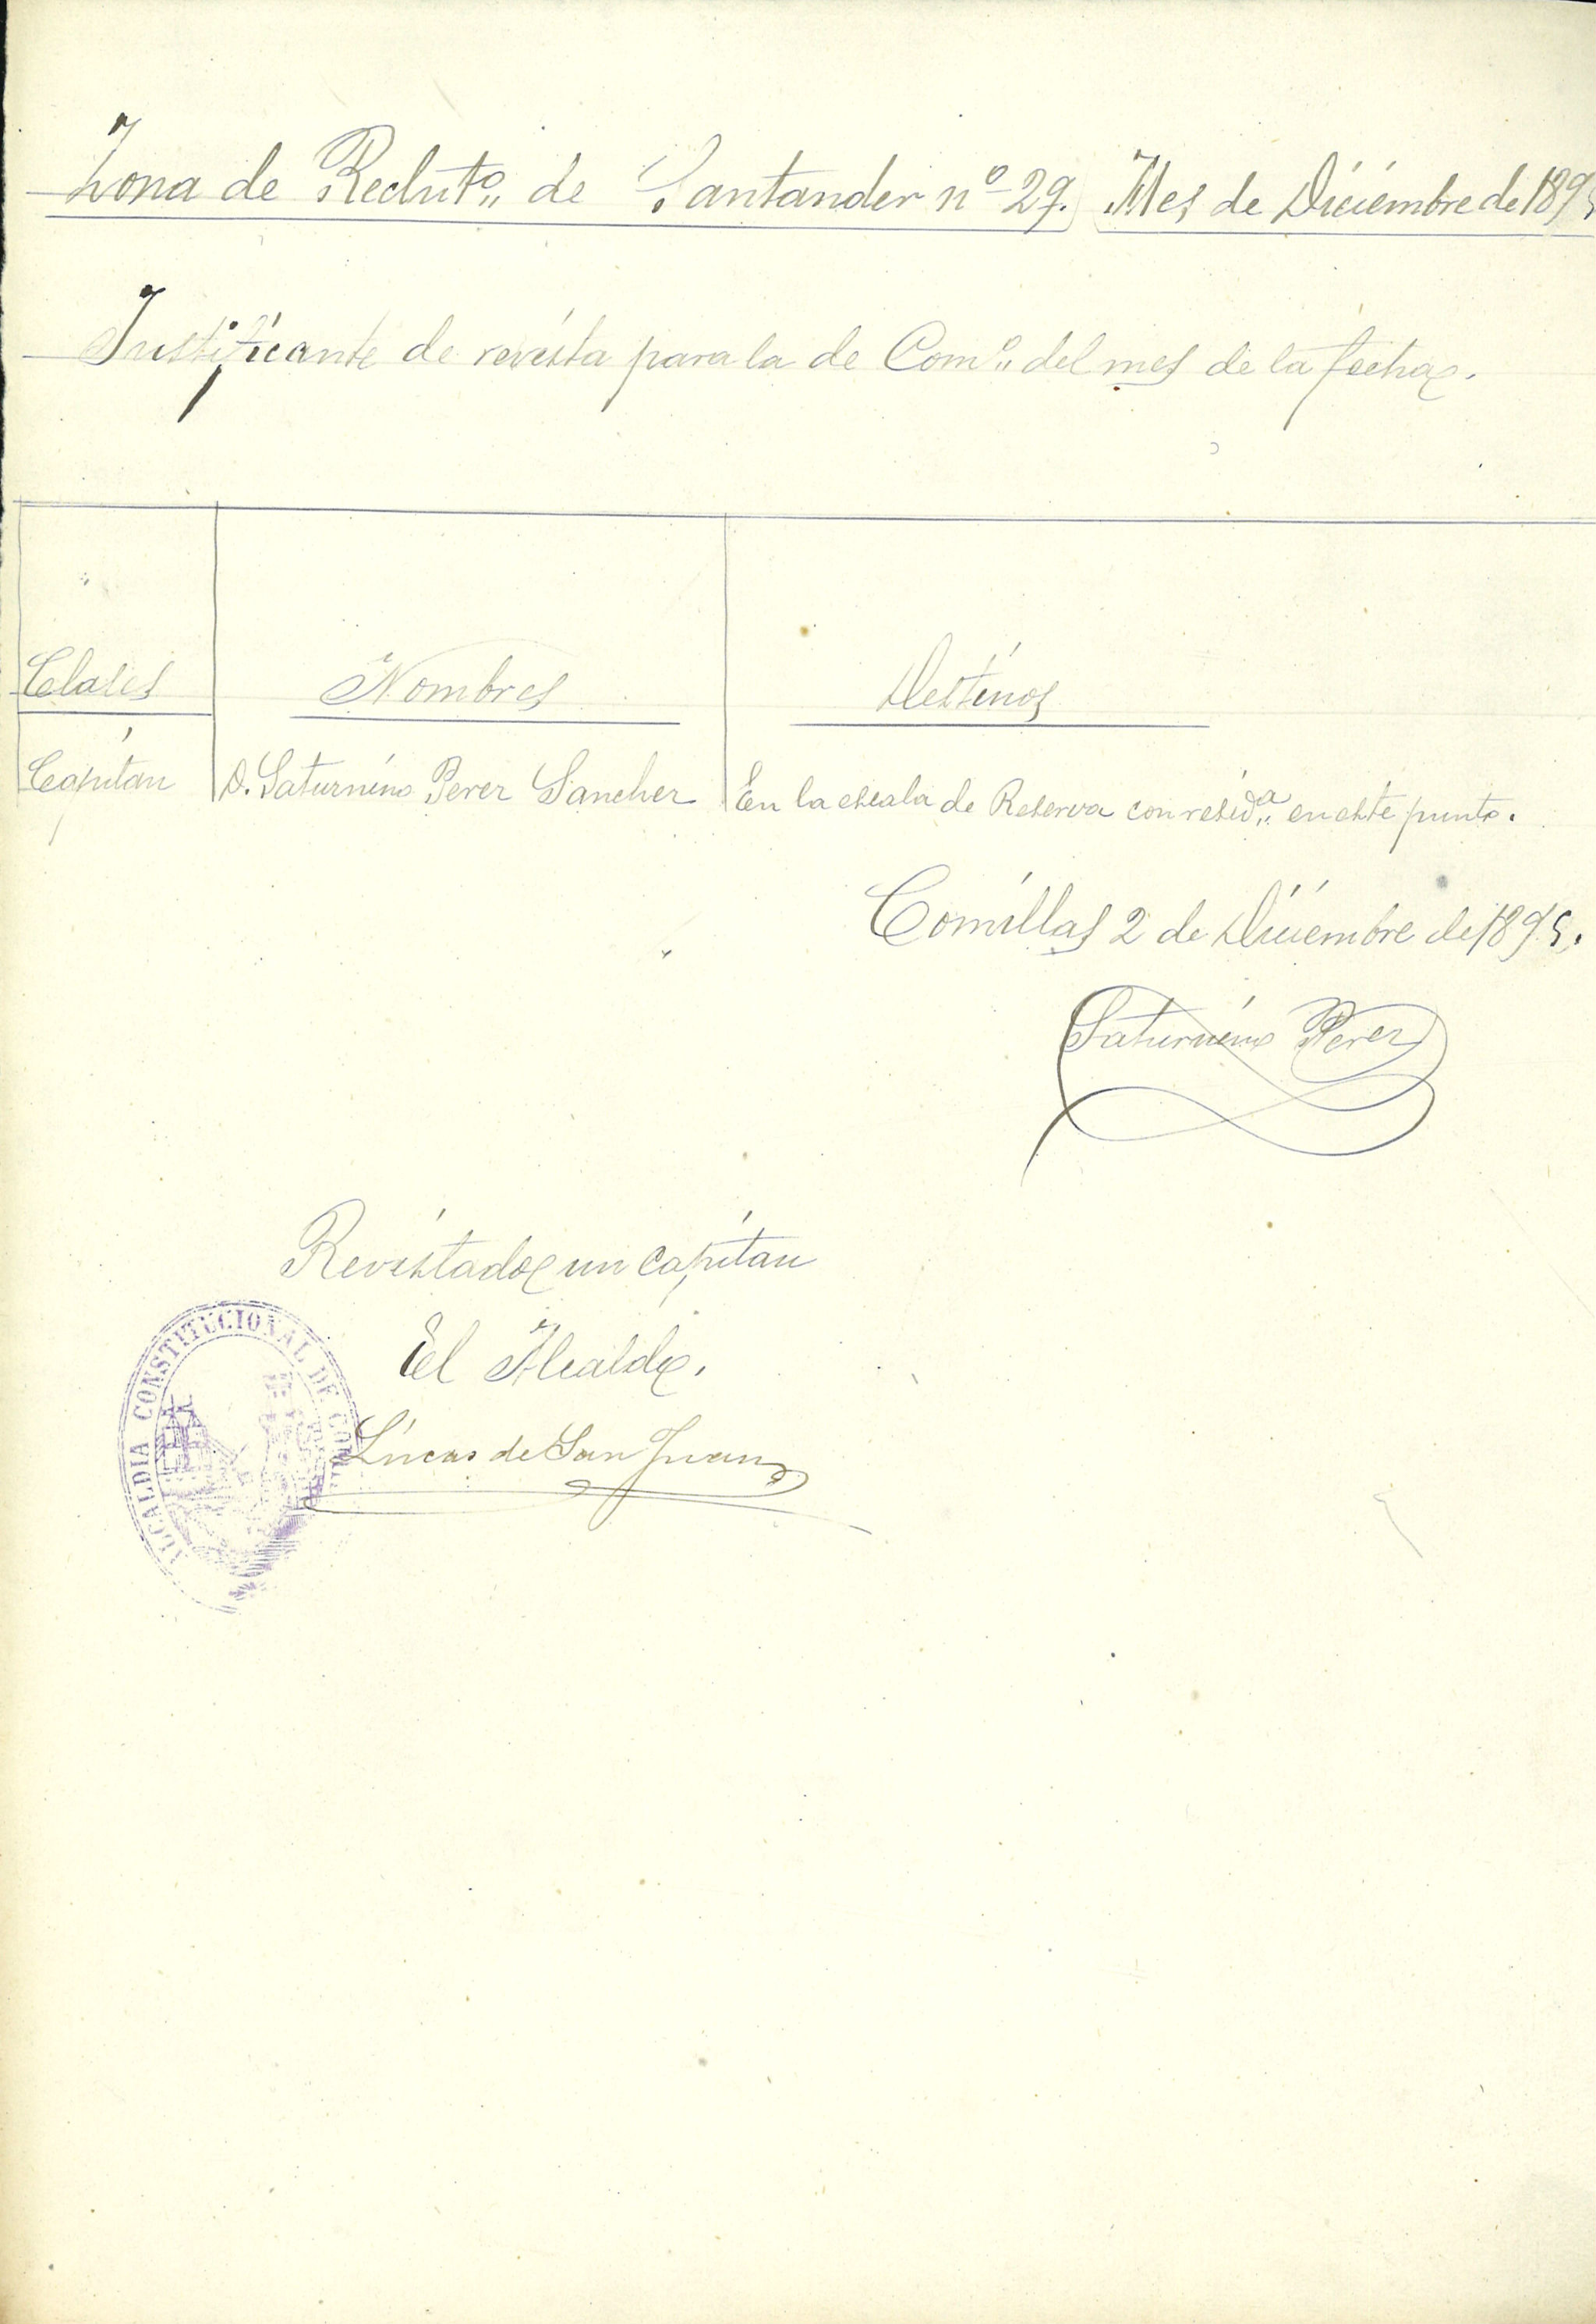 Zona de Reclutº de Santander nº 29. Mes de Diciembre de 1895
Justificante de revista para la de Comº del mes de la fecha.
Clases Nombres Destinos
Capitan D. Saturnino Perez Sanchez En la escala de Reserva con residª en este punto.
Comillas 2 de Diciembre de 1895.
Saturnino Perez
Revistado un capitan
El Alcalde,
Lucas de San Juan
ALCALDIA CONSTITUCIONAL DE